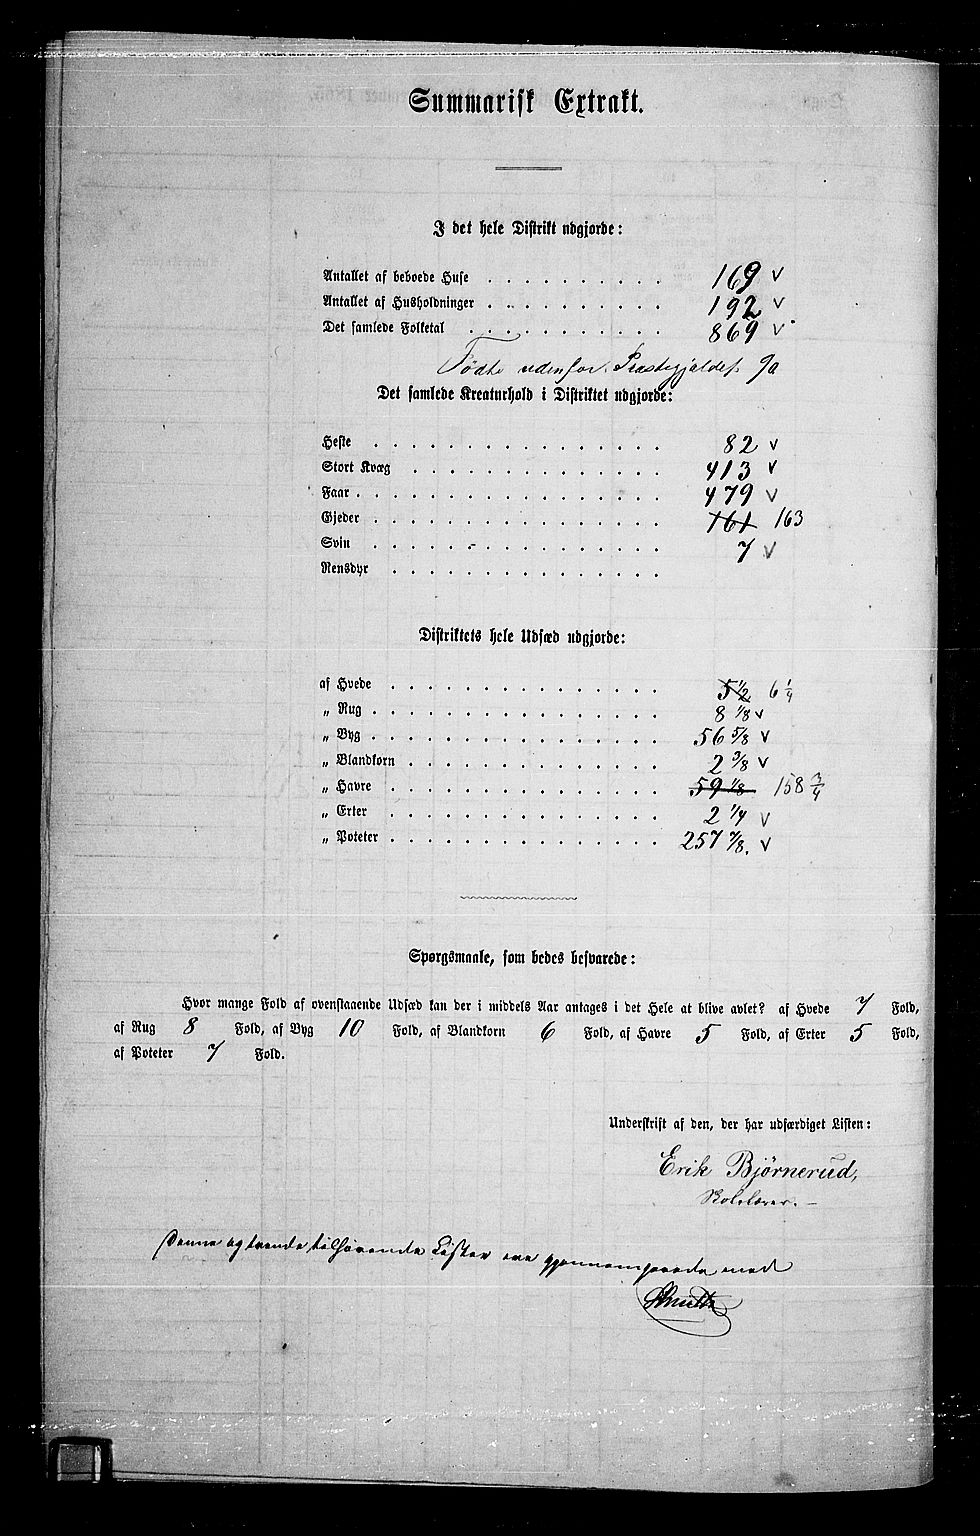 Summarisk Extrakt.
I det hele Distrikt udgjorde:
Antallet af beboede Huse . . . . . . . . . . 169 v
Antallet af Husholdninger . . . . . . . . . . 192 v
Det samlede Folketal . . . . . . . . . . . 869 v
Fødte udenfor Præstegjeldet 90
Det samlede Kreaturhold i Distriktet udgjorde:
Heste . . . . . . . . . . . . . . . . 82 v
Stort Kvæg . . . . . . . . . . . . . . 413 v
Faar . . . . . . . . . . . . . . . . . 479 v
Gjeder . . . . . . . . . . . . . . . . 161 163
Svin . . . . . . . . . . . . . . . . 7 v
Rensdyr . . . . . . . . . . . . . . .
Distriktets hele Udsæd udgjorde:
af Hvede . . . . . . . . . . . . . . . 5 1/2 6 1/4
„ Rug . . . . . . . . . . . . . . . . 8 1/8 v
„ Byg . . . . . . . . . . . . . . . . 56 5/8 v
„ Blandkorn . . . . . . . . . . . . . . 2 3/8 v
„ Havre . . . . . . . . . . . . . . . 59 1/8 158 3/4
„ Erter . . . . . . . . . . . . . . . 2 1/4 v
„ Poteter . . . . . . . . . . . . . . . 257 7/8. v
Spørgsmaale, som bedes besvarede:
Hvor mange Fold af ovenstaaende Udsæd kan der i middels Aar antages i det Hele at blive avlet? af Hvede 7 Fold,
af Rug 8 Fold, af Byg 10 Fold, af Blandkorn 6 Fold, af Havre 5 Fold, af Erter 5 Fold,
af Poteter 7 Fold.
Underskrift af den, der har udfærdiget Listen:
Erik Bjørnerud,
Skolelærer.
Denne og tvende tilhørende Lister ere gjennemgaaede med